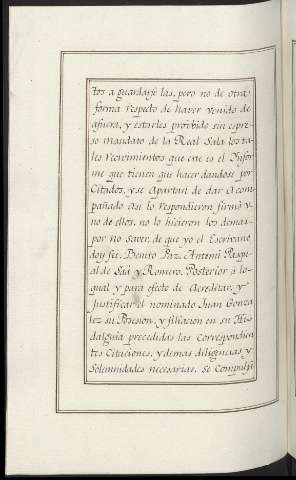 tos a guardarse las, pero no de otra
forma respecto de haver venido de
afuera, y estarles proibido sin espre-
so mandato de la Real Sala los ta-
les recivimientos que este es el Ynfor
me que tienen que hacer dandose por
Citados, y se apartan de dar Acom-
pañado asi lo respondieron firmó v-
no de ellos, no lo hicieron los demas
por no saver, de que yo el Escrivano
doy fee. Benito Paz. Antemi Pasqu-
al de Saá y Romero. Posterior á lo-
qual y para efecto de Acreditar, y
Justificar el nominado Juan Gonza
lez su Posesion, y filiacion en su Hi-
dalguia precedidas las Correspondien
tes Citaciones, y demas diligencias, y
Solemnidades necesarias, se Compulsó